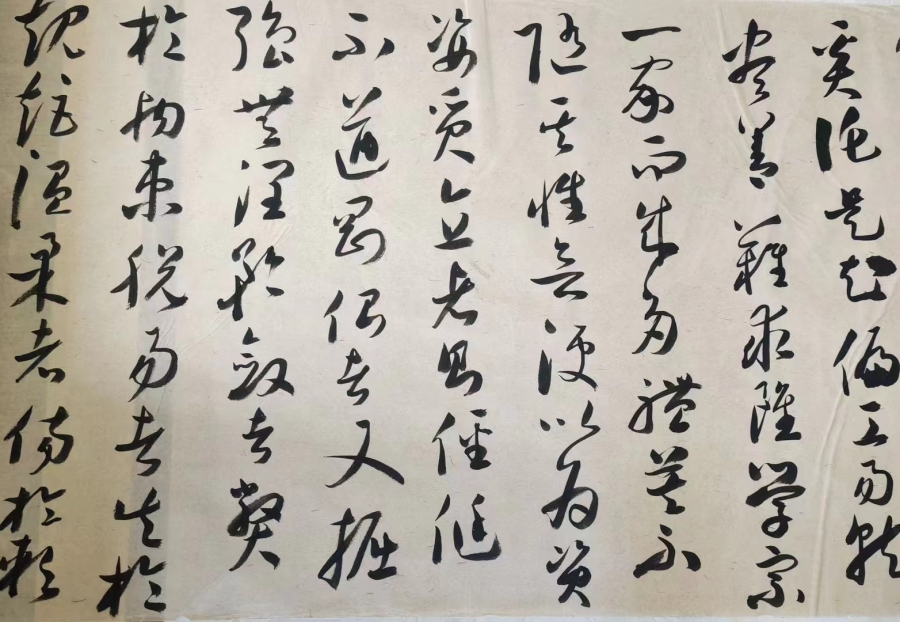 奚託是知偏工易就
盡善難求雖學宗
一家而成多體莫不
隨其性欲便以為資
姿質直者則俓侹
不遒剛佷者又掘
強無潤矜斂者弊
於拘束脫易者失於
規矩溫柔者傷於軟